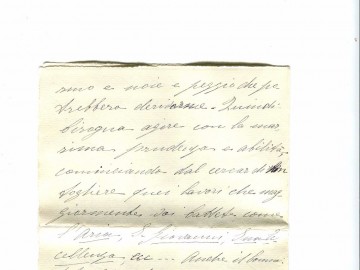 reno e noie e peggio che po
trebbero derivarne. Quindi
bisogna agire con la mas
sima prudenza e abilità,
cominciando dal cercar di
togliere quei lavori che mag
giormente
l'Aria, S. Giovanni, Sua Ec
cellenza, ecc... Anche il